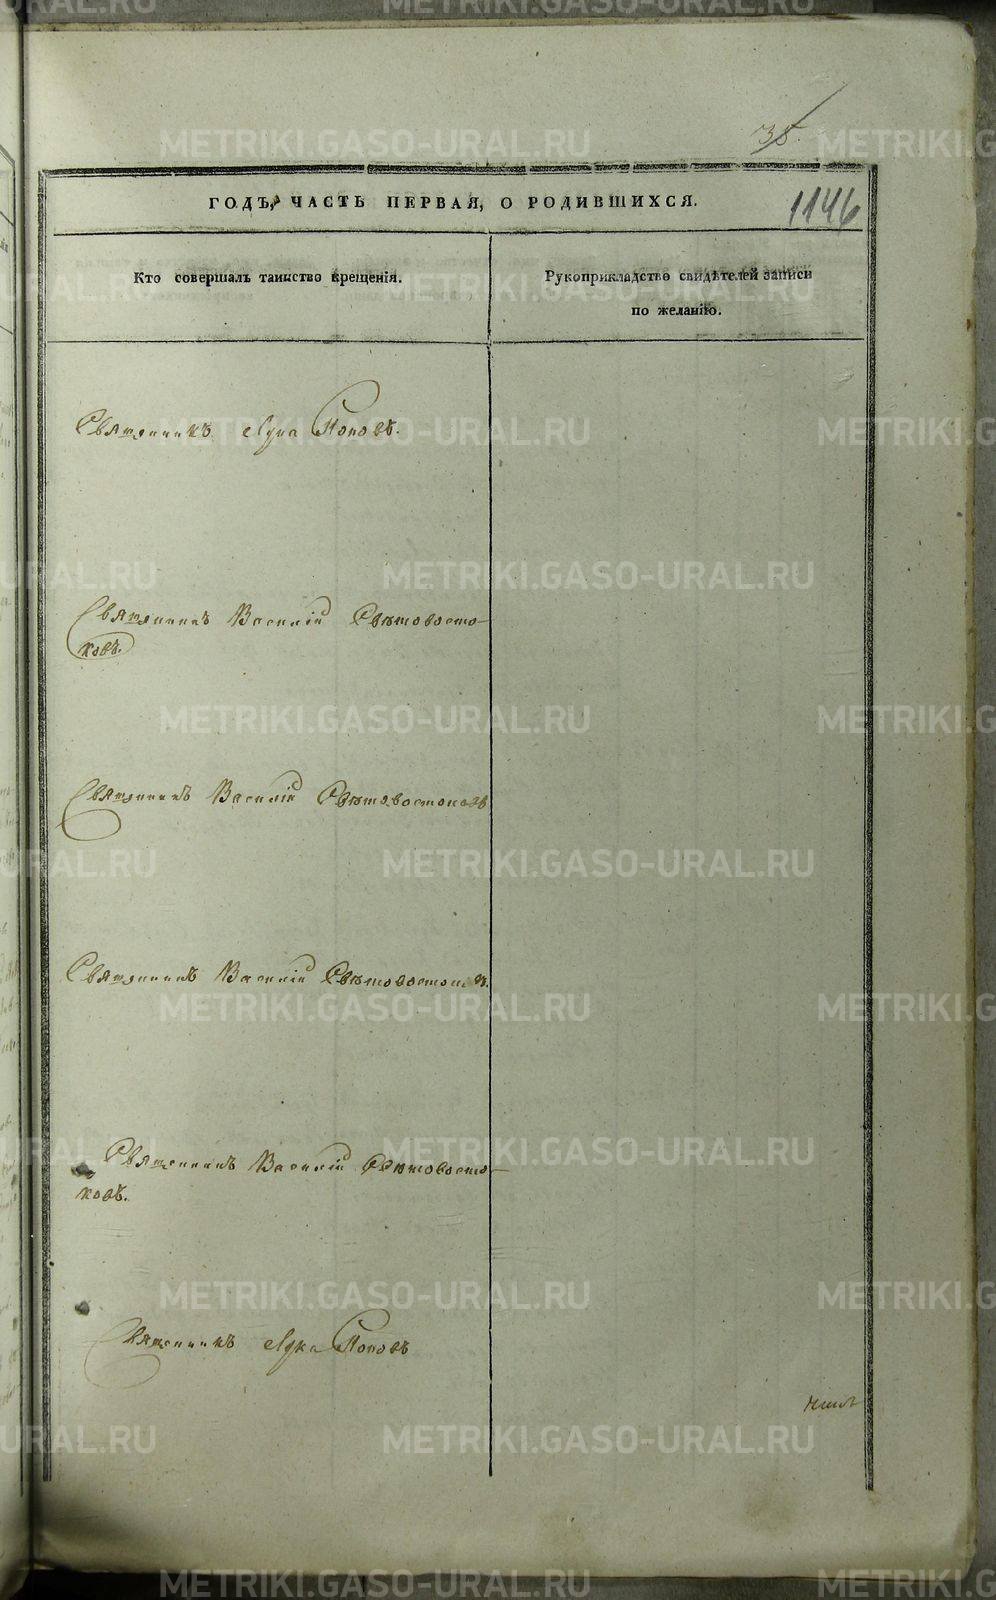 METRIKI.GASO-URAL.RU
35.
ГОДЪ, ЧАСТЬ ПЕРВАЯ, О РОДИВШИХСЯ.
1146
Кто совершалъ таинство крещенія.
Рукоприкладство свидѣтелей записи
по желанію.
Священникъ Лука Поповъ.
Священникъ Василій Свѣтовосто-
ковъ.
Священникъ Василій Свѣтовостоковъ
Священникъ Василій Свѣтовостоковъ.
Священникъ Василій Свѣтовосто-
ковъ.
Священникъ Лука Поповъ